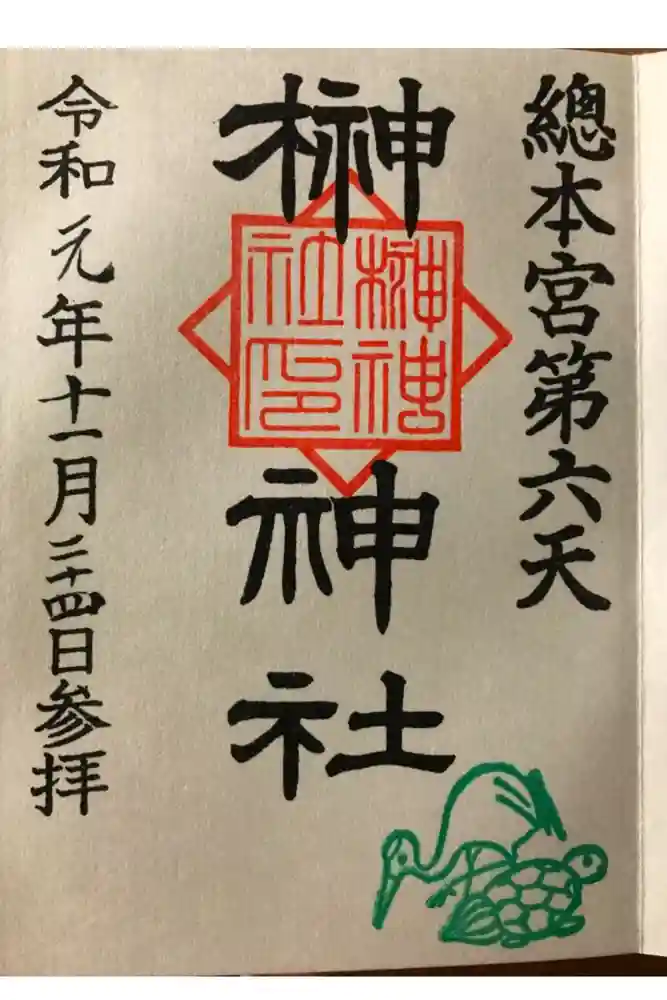 總本宮第六天
榊神社
榊神
社印
令和元年十一月二十四日参拝